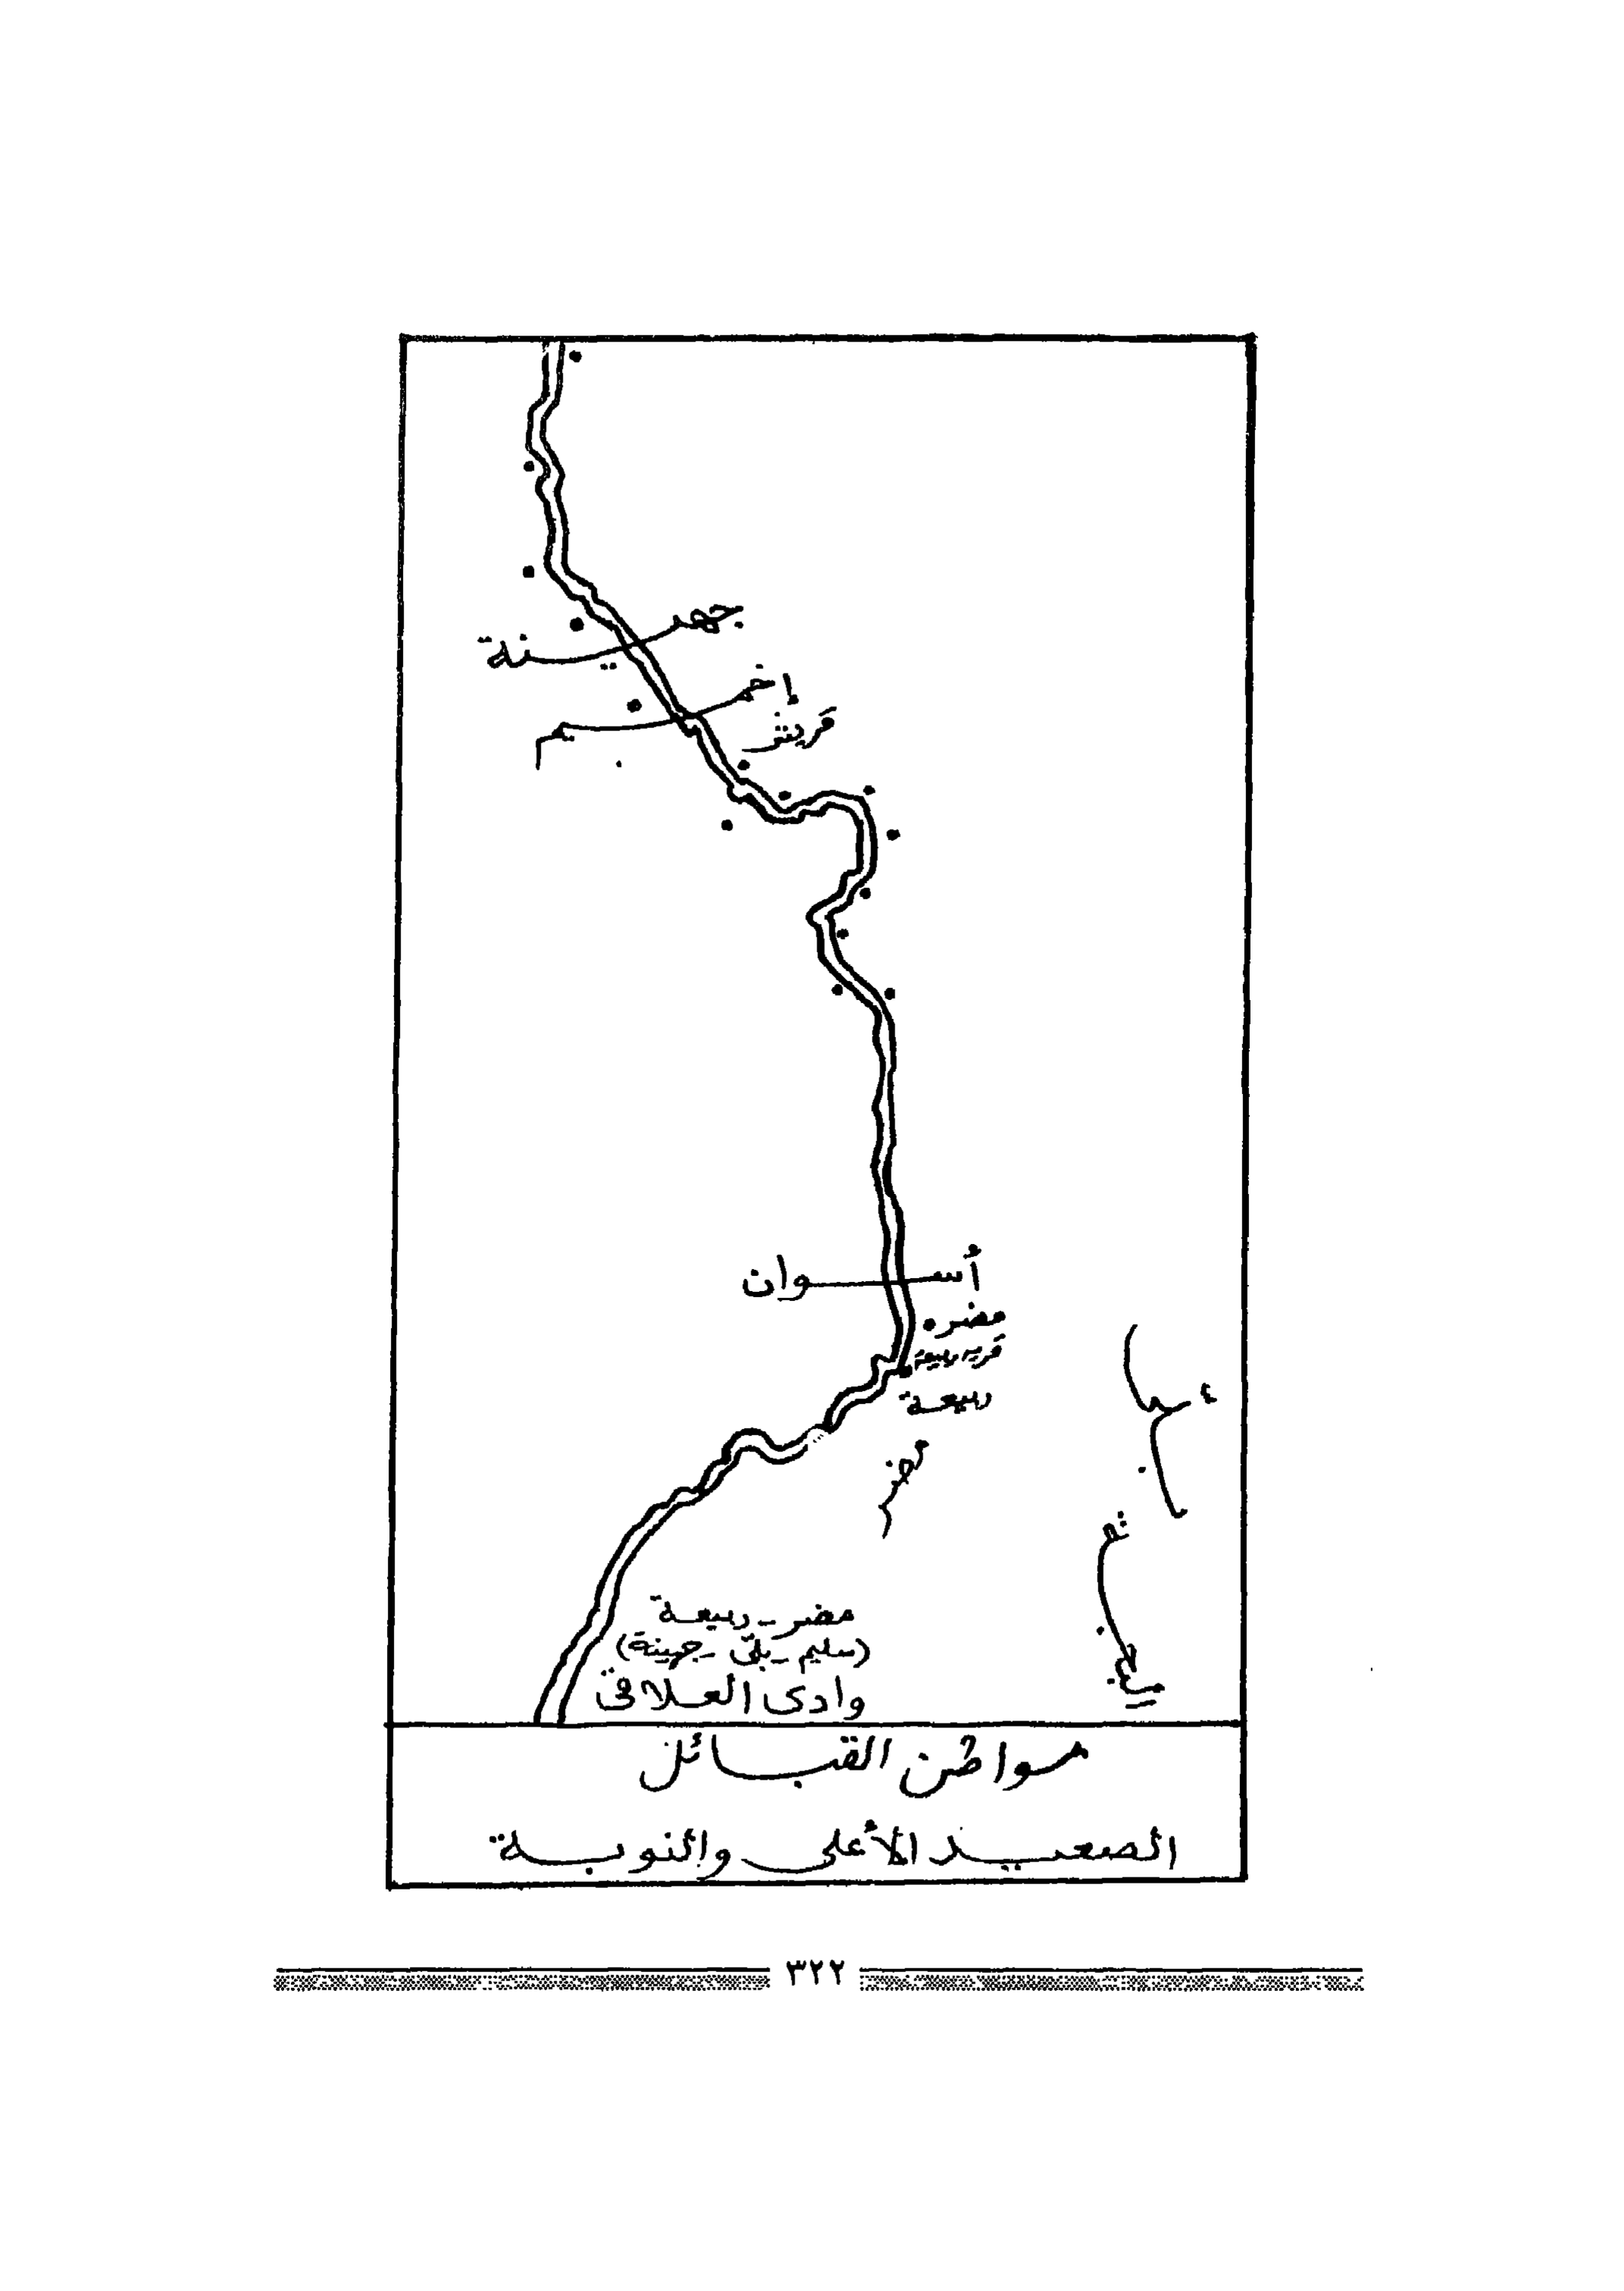 جهينة
إخميم
قريش
أسوان
مضر
قريه ربيعة
ربيعة
مضر
مضر - ربيعة
(سليم - بلى - جهينة)
وادى العلاقى
مواطن القبائل
الصعيد الأعلى والنوبة
٣٢٢